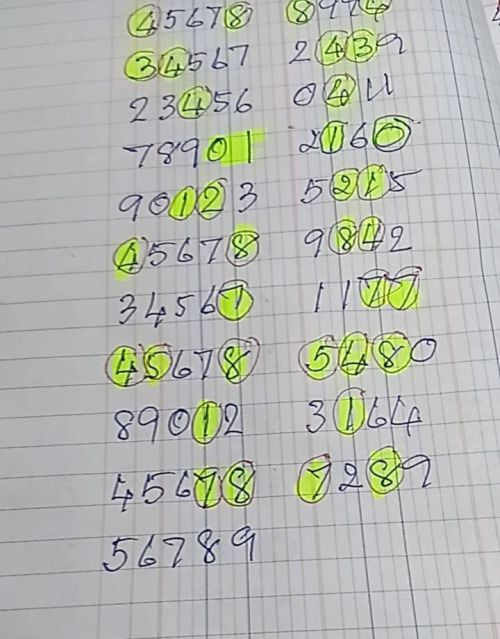 45678 8974
34567 2439
23456 0411
78901 2160
90123 5215
45678 9842
34567 1177
45678 5480
89012 3164
45678 7289
56789